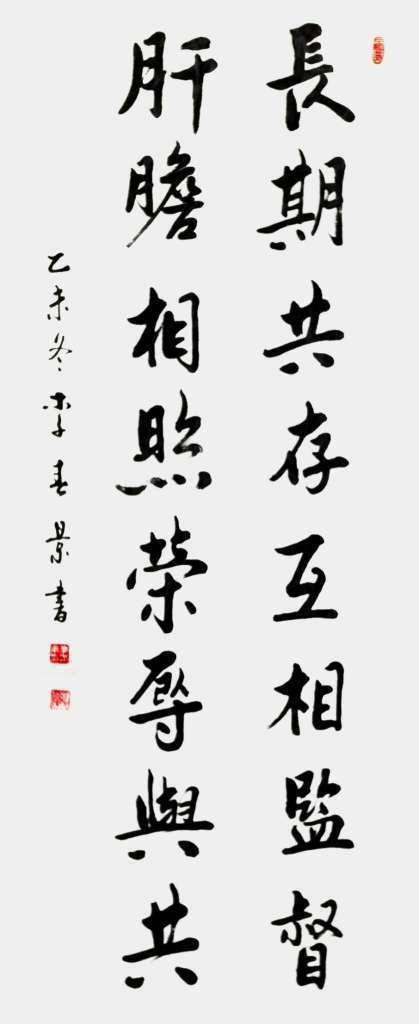 長期共存互相監督
肝膽相照榮辱與共
乙未冬李春景書